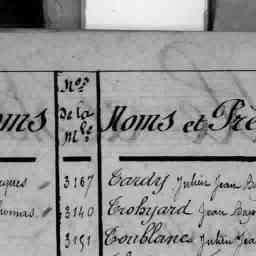 Nos
de la
Mle
oms
Noms et Pré
ques 3167 Tardy Julien Jean Ba
homas 3140 Trohyard Jean
3151 Toublanc Julien Jea